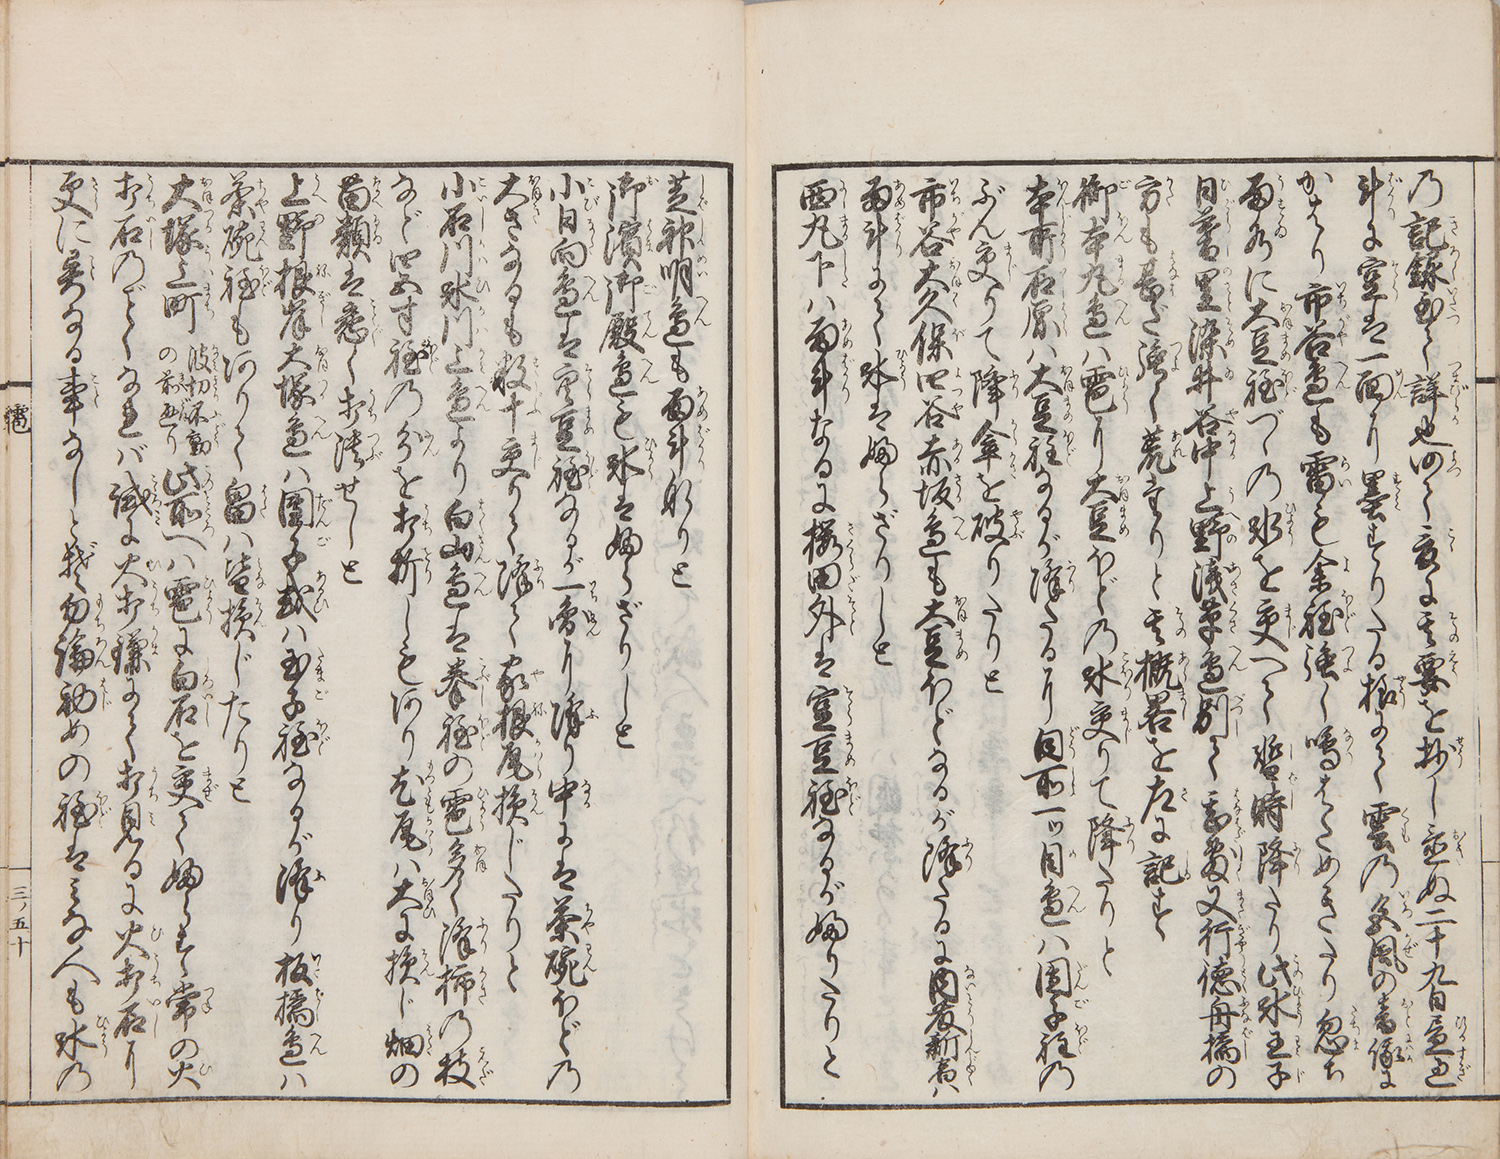 の記録至て詳也よつて爰に其要を抄し並ぬ二十九日昼過
計に空は一面に墨をすりたる様にて雲の色風の音俄に
かはり市谷辺も雷も余程強く鳴はためきたり忽ち
雨水に大豆程づゝの氷を交へて暫時降たり此氷王子
目暮里染井谷中上野浅草辺別て甚敷又行徳舟橋の
方も甚だ強く荒たりと其概畧を左に記す
御本丸辺ハ雹り大豆ほどの氷交りて降たりと
本所石原ハ大豆程なるが降たるに同所一ツ目辺ハ団子程の
ぶん交りて降傘を破りたりと
市谷大久保四谷赤坂辺も大豆ほどなるが降たるに内藤新宿ハ
雨計にて氷は婦らざりしと
西丸下ハ雨計なるに桜田外は空豆程なるが婦りたりと
芝神明辺も雨計なりと
御濱御殿辺も氷は婦らざりしと
小日向辺は空豆程なるが一面に降り中には茶碗ほどの
大さなるも数十交りて降て家根瓦損じたりと
小石川氷川上辺より白山辺は拳程の雹多く降柿の枝
など四五寸程の分を打折しも有り尤瓦ハ大に損じ畑の
菊類は悉く打潰せしと
上野根岸大塚辺ハ団子或ハ玉子程なるが降り板橋辺ハ
茶碗程も有りて畠ハ皆損じたりと
大塚上町波切不動の前通り此所へハ雹に白石を交て婦らす常の火
打石のごとくなれバ試に火打鎌にて打見るに火打石に
更に異なる事なしと我ら勿論初めの程はみな人も氷の
雹
三ノ五十